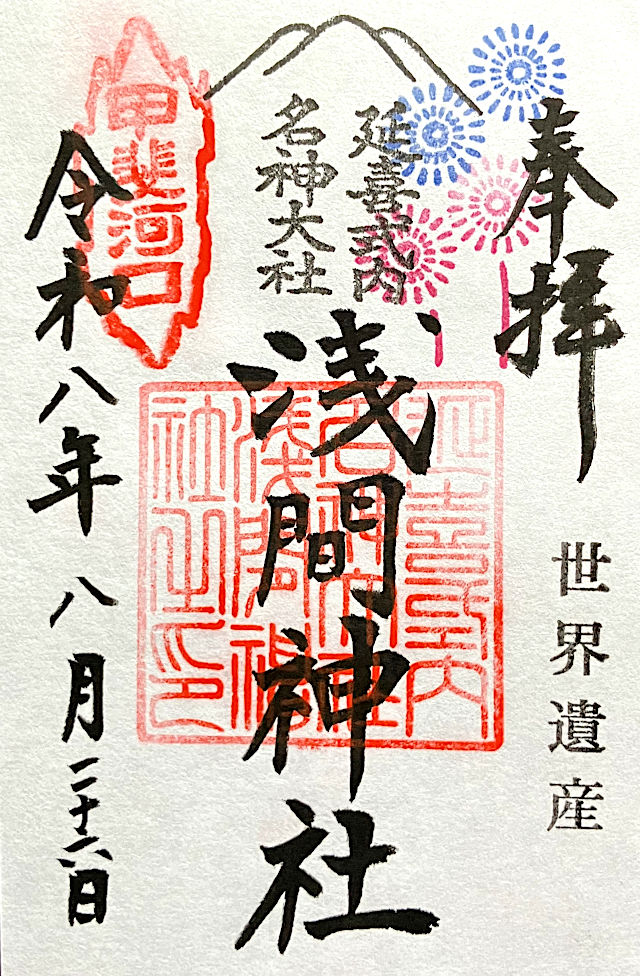 奉拝
世界遺産
延喜式内
名神大社
浅間神社
延喜式内
名神大社
浅間神
社之印
甲斐河口
令和八年八月二十六日